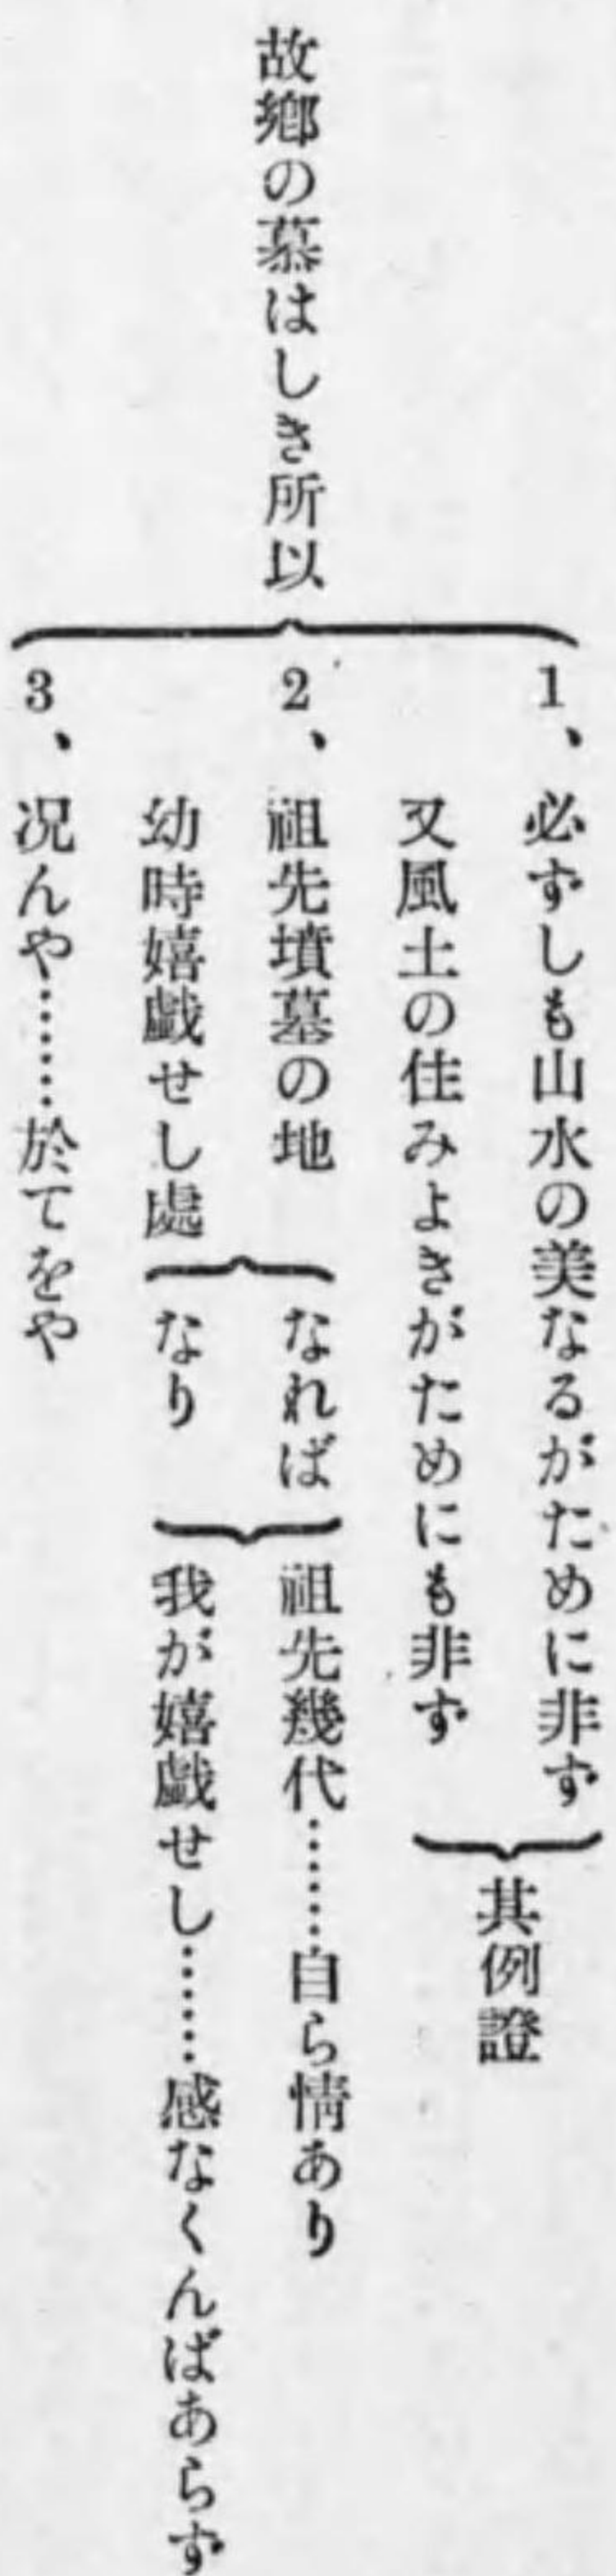 故鄕の慕はしき所以
1、必ずしも山水の美なるがために非ず
又風土の住みよきがためにも非ず
其例證
2、祖先墳墓の地
幼時嬉戯せし處
なれば
なり
祖先幾代……自ら情あり
我が嬉戯せし……感なくんばあらず
3、况んや……於てをや